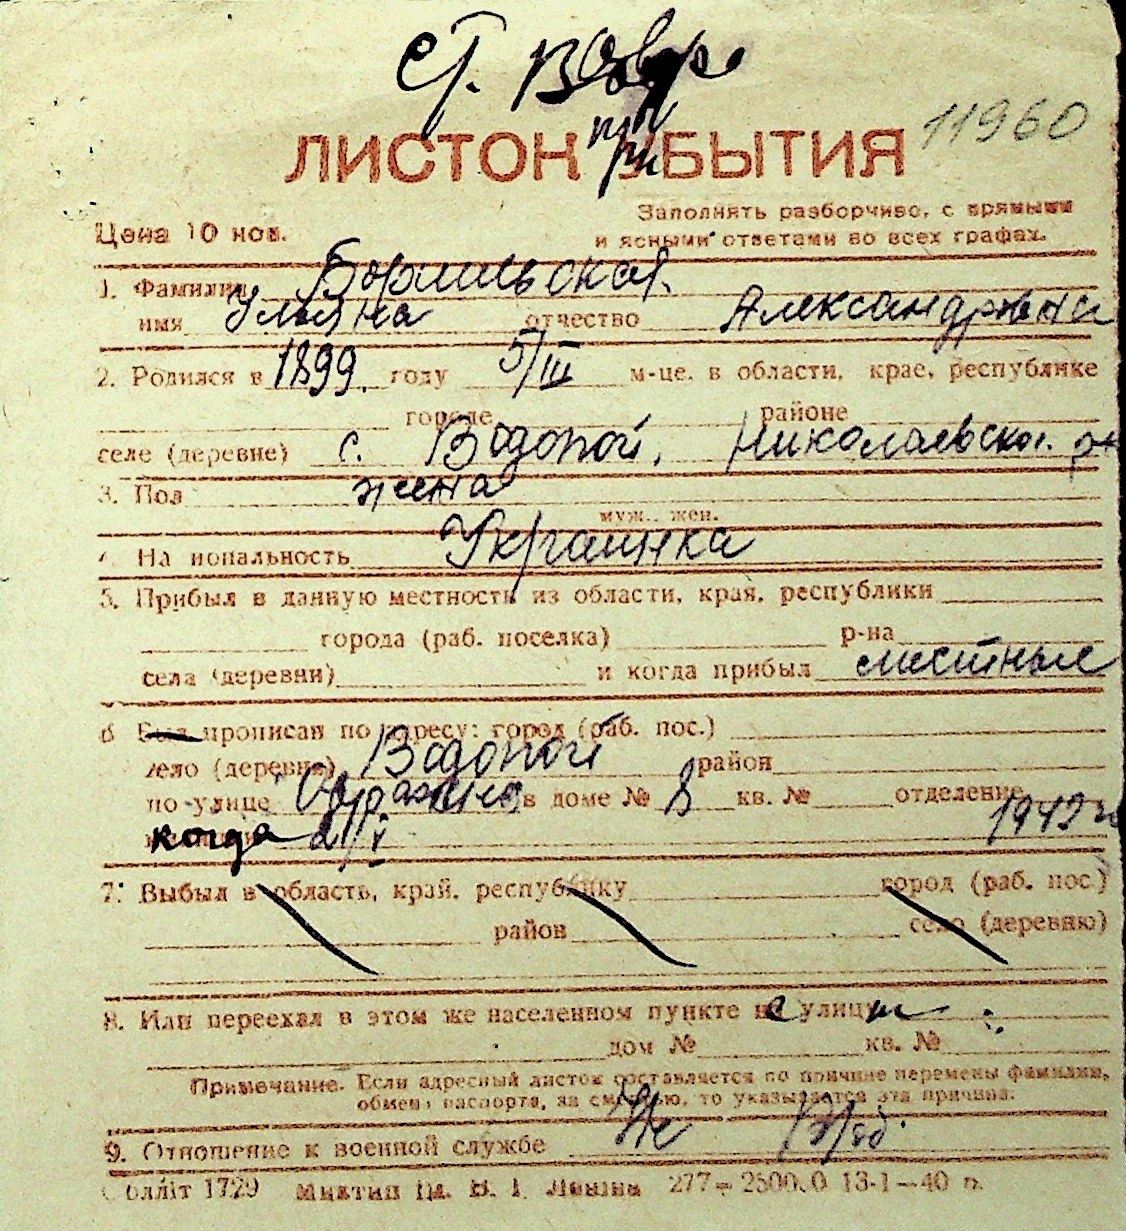 ст.
при
ЛИСТОК УБЫТИЯ 11960
Заполнять разборчиво, с прямыми
Цена 10 коп. и ясными ответами во всех графах.
1. Фамилия
имя Ульяна отчество Александровна
2. Родился в 1899 году 5/III м-це, в области, крае, республике
городе районе
селе (деревне) с. Водопой, Николаевског. рн
3. Пол жена
муж., жен.
4. На иональность Украинка
5. Прибыл в данную местность из области, края, республики
города (раб. поселка) р-на
села (деревни) и когда прибыл местные
6 Был прописан по адресу: город (раб. пос.)
село (деревня) Водопой район
по улице в доме № 8 кв. № отделение
когда 2/V 1942 г.
7. Выбыл в область, край, республику город (раб. пос.)
район село (деревню)
8. Или переехал в этом же населенном пункте на улицу
дом № кв. №
Примечание. Если адресный листок составляется по причине перемены фамилии,
обмена паспорта, за смертью, то указывается эта причина.
9. Отношение к военной службе Не
Облліт 1729 Миктип Ім. В. І. Леніна 277—2500.0 13-1—40 р.